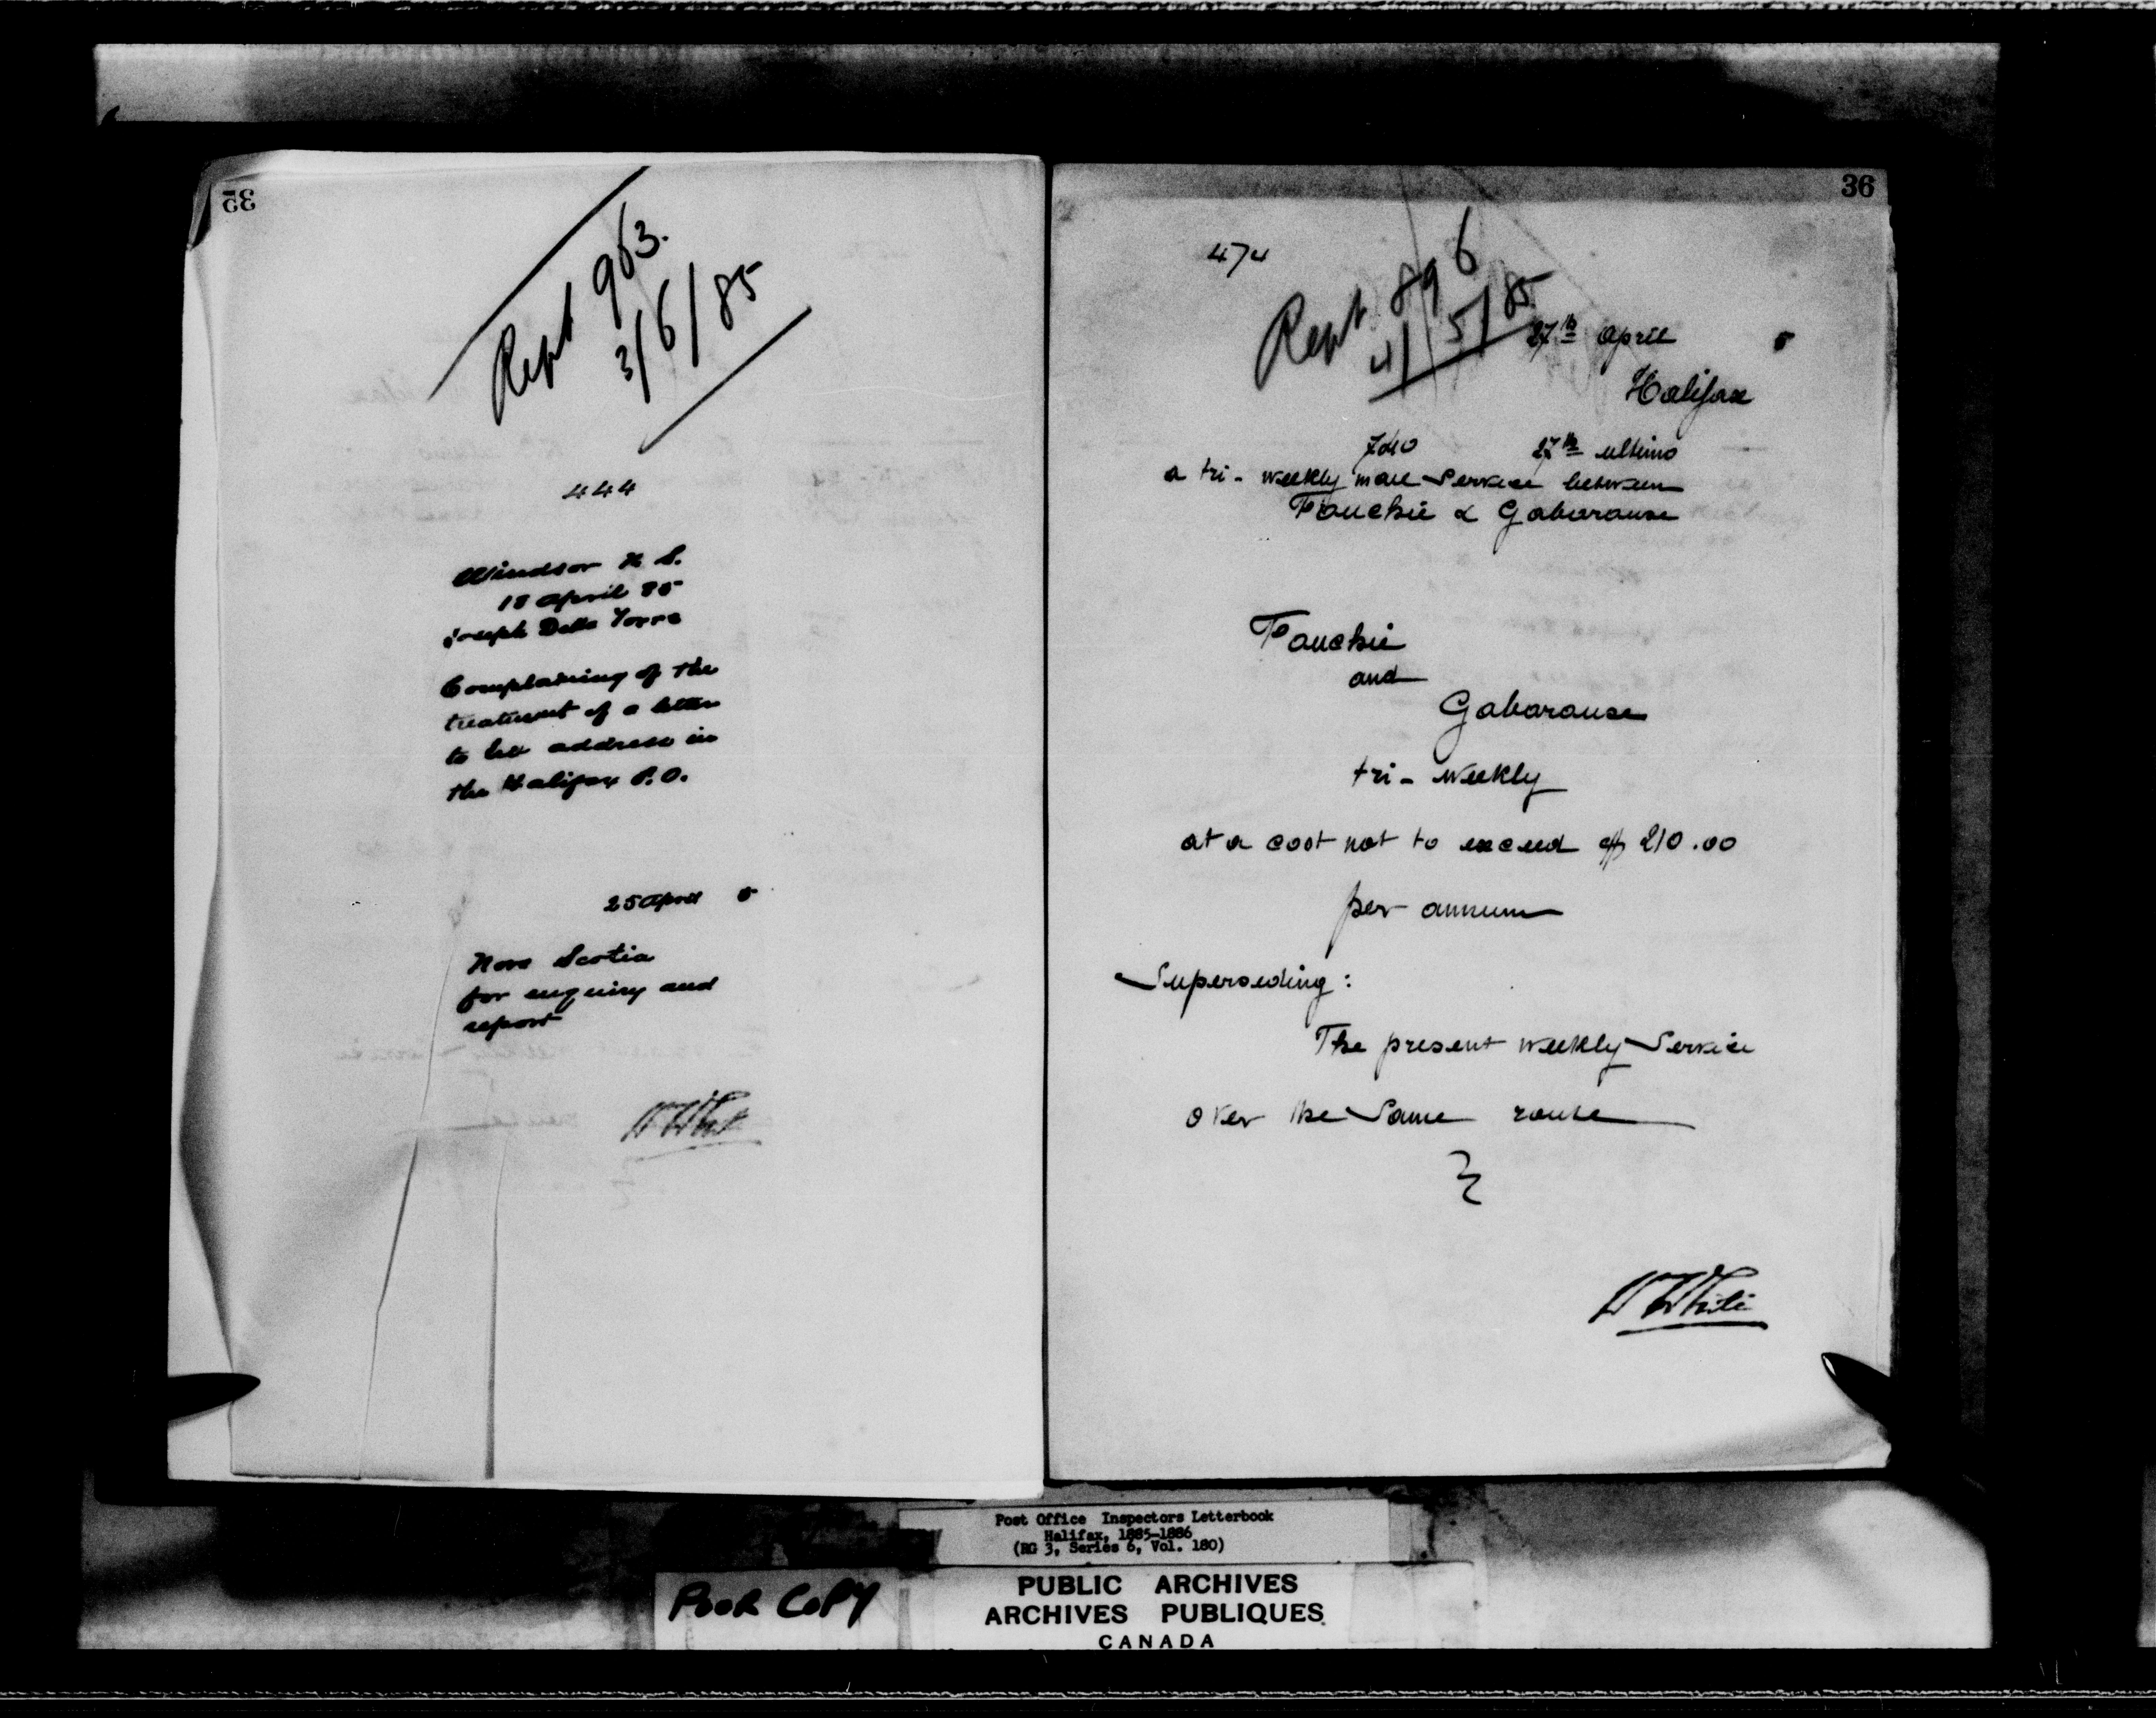 35
Rept 963.
3/6/85
444
Windsor N. S.
18 April 85
Joseph Della Torre
Complaining of the
treatment of a letter
to his address in
the Halifax P.O.
25 April 5
Nova Scotia
for enquiry and
report
36
474
Rept. 896
4/5/85
27th April 5
Halifax
27th ultimo
a tri-weekly mail Service between
Fouchie & Gabarouse
Fouchie
and
Gabarouse
tri-weekly
at a cost not to exceed $210.00
per annum
Superseding:
The present weekly Service
over the Same route
Post Office Inspectors Letterbook
Halifax, 1885-1886
(RG 3, Series 6, Vol. 180)
POOR COPY
PUBLIC ARCHIVES
ARCHIVES PUBLIQUES
CANADA